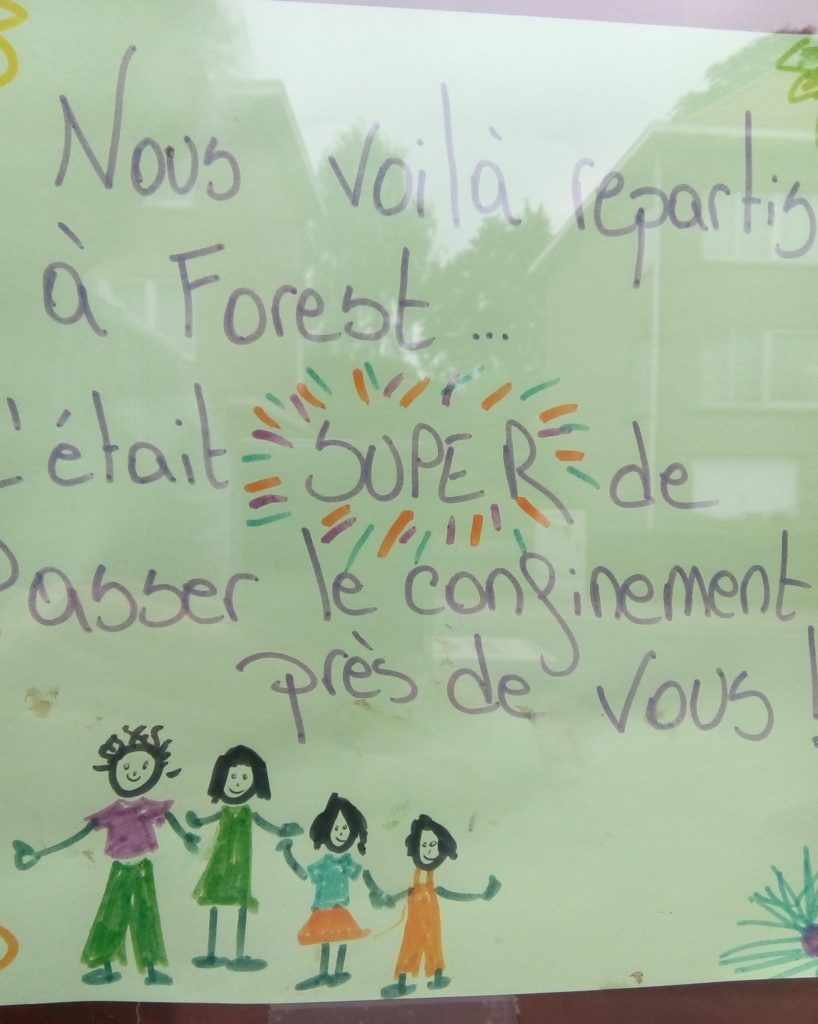 Nous voilà repartis
à Forest...
C'était SUPER de
Passer le confinement
près de vous !